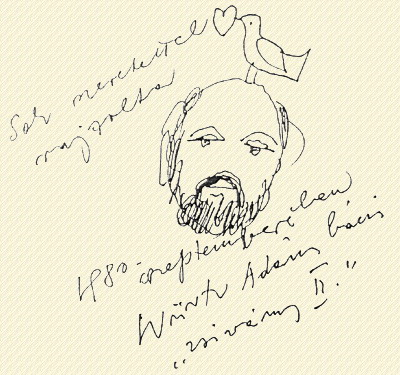 Sok szeretettel
rajzolta
1980 -
szeptemberében
Würtz Ádám bácsi
„zsivány II."